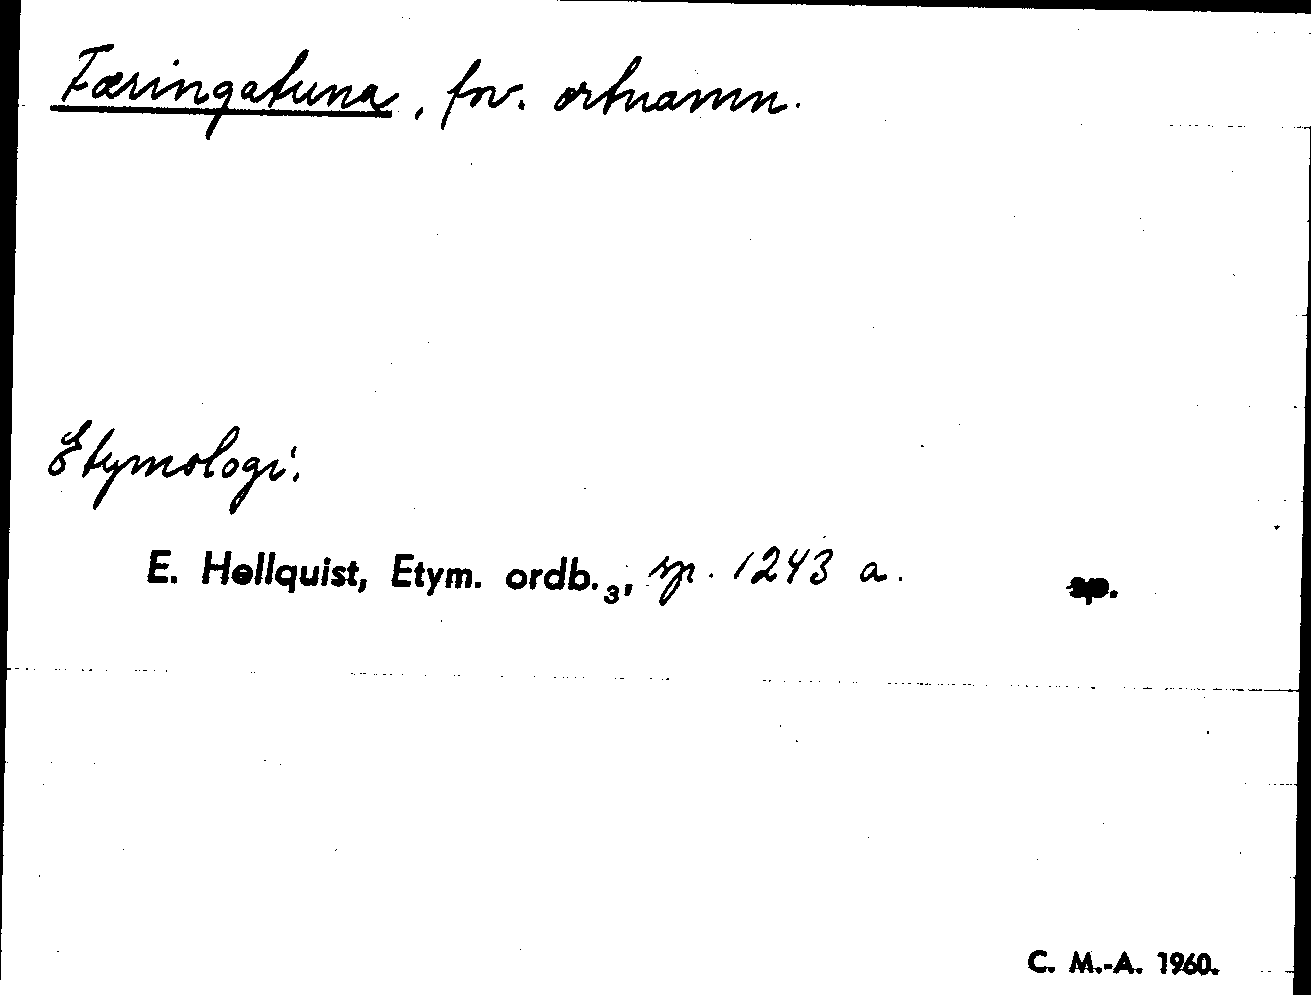 Færingatuna, fnv. ortnamn.
Etymologi:
E. Hellquist, Etym. ordb.₃, sp. 1243 a.
C. M.-A. 1960.